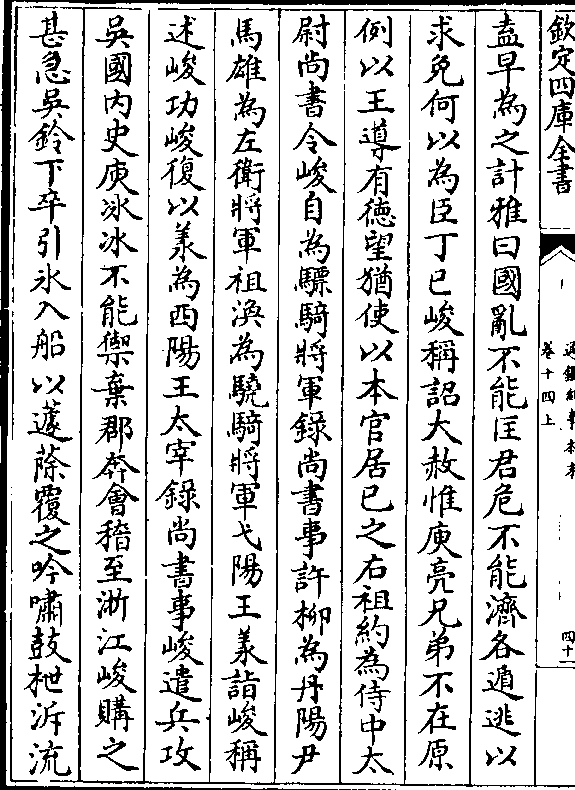 欽定四庫全書
通鑑紀事本末
卷十四上
四十一
盍早為之計雅曰國亂不能匡君危不能濟各遁逃以
求免何以為臣丁巳峻稱詔大赦惟庾亮兄弟不在原
例以王導有德望猶使以本官居己之右祖約為侍中太
尉尚書令峻自為驃騎將軍錄尚書事許栁為丹陽尹
馬雄為左衛將軍祖渙為驍騎將軍弋陽王羕詣峻稱
述峻功峻復以羕為西陽王太宰錄尚書事峻遣兵攻
吳國内史庾冰冰不能禦棄郡奔會稽至浙江峻購之
甚急吳鈴下卒引氷入船以蘧蒢覆之吟嘯鼓枻泝流